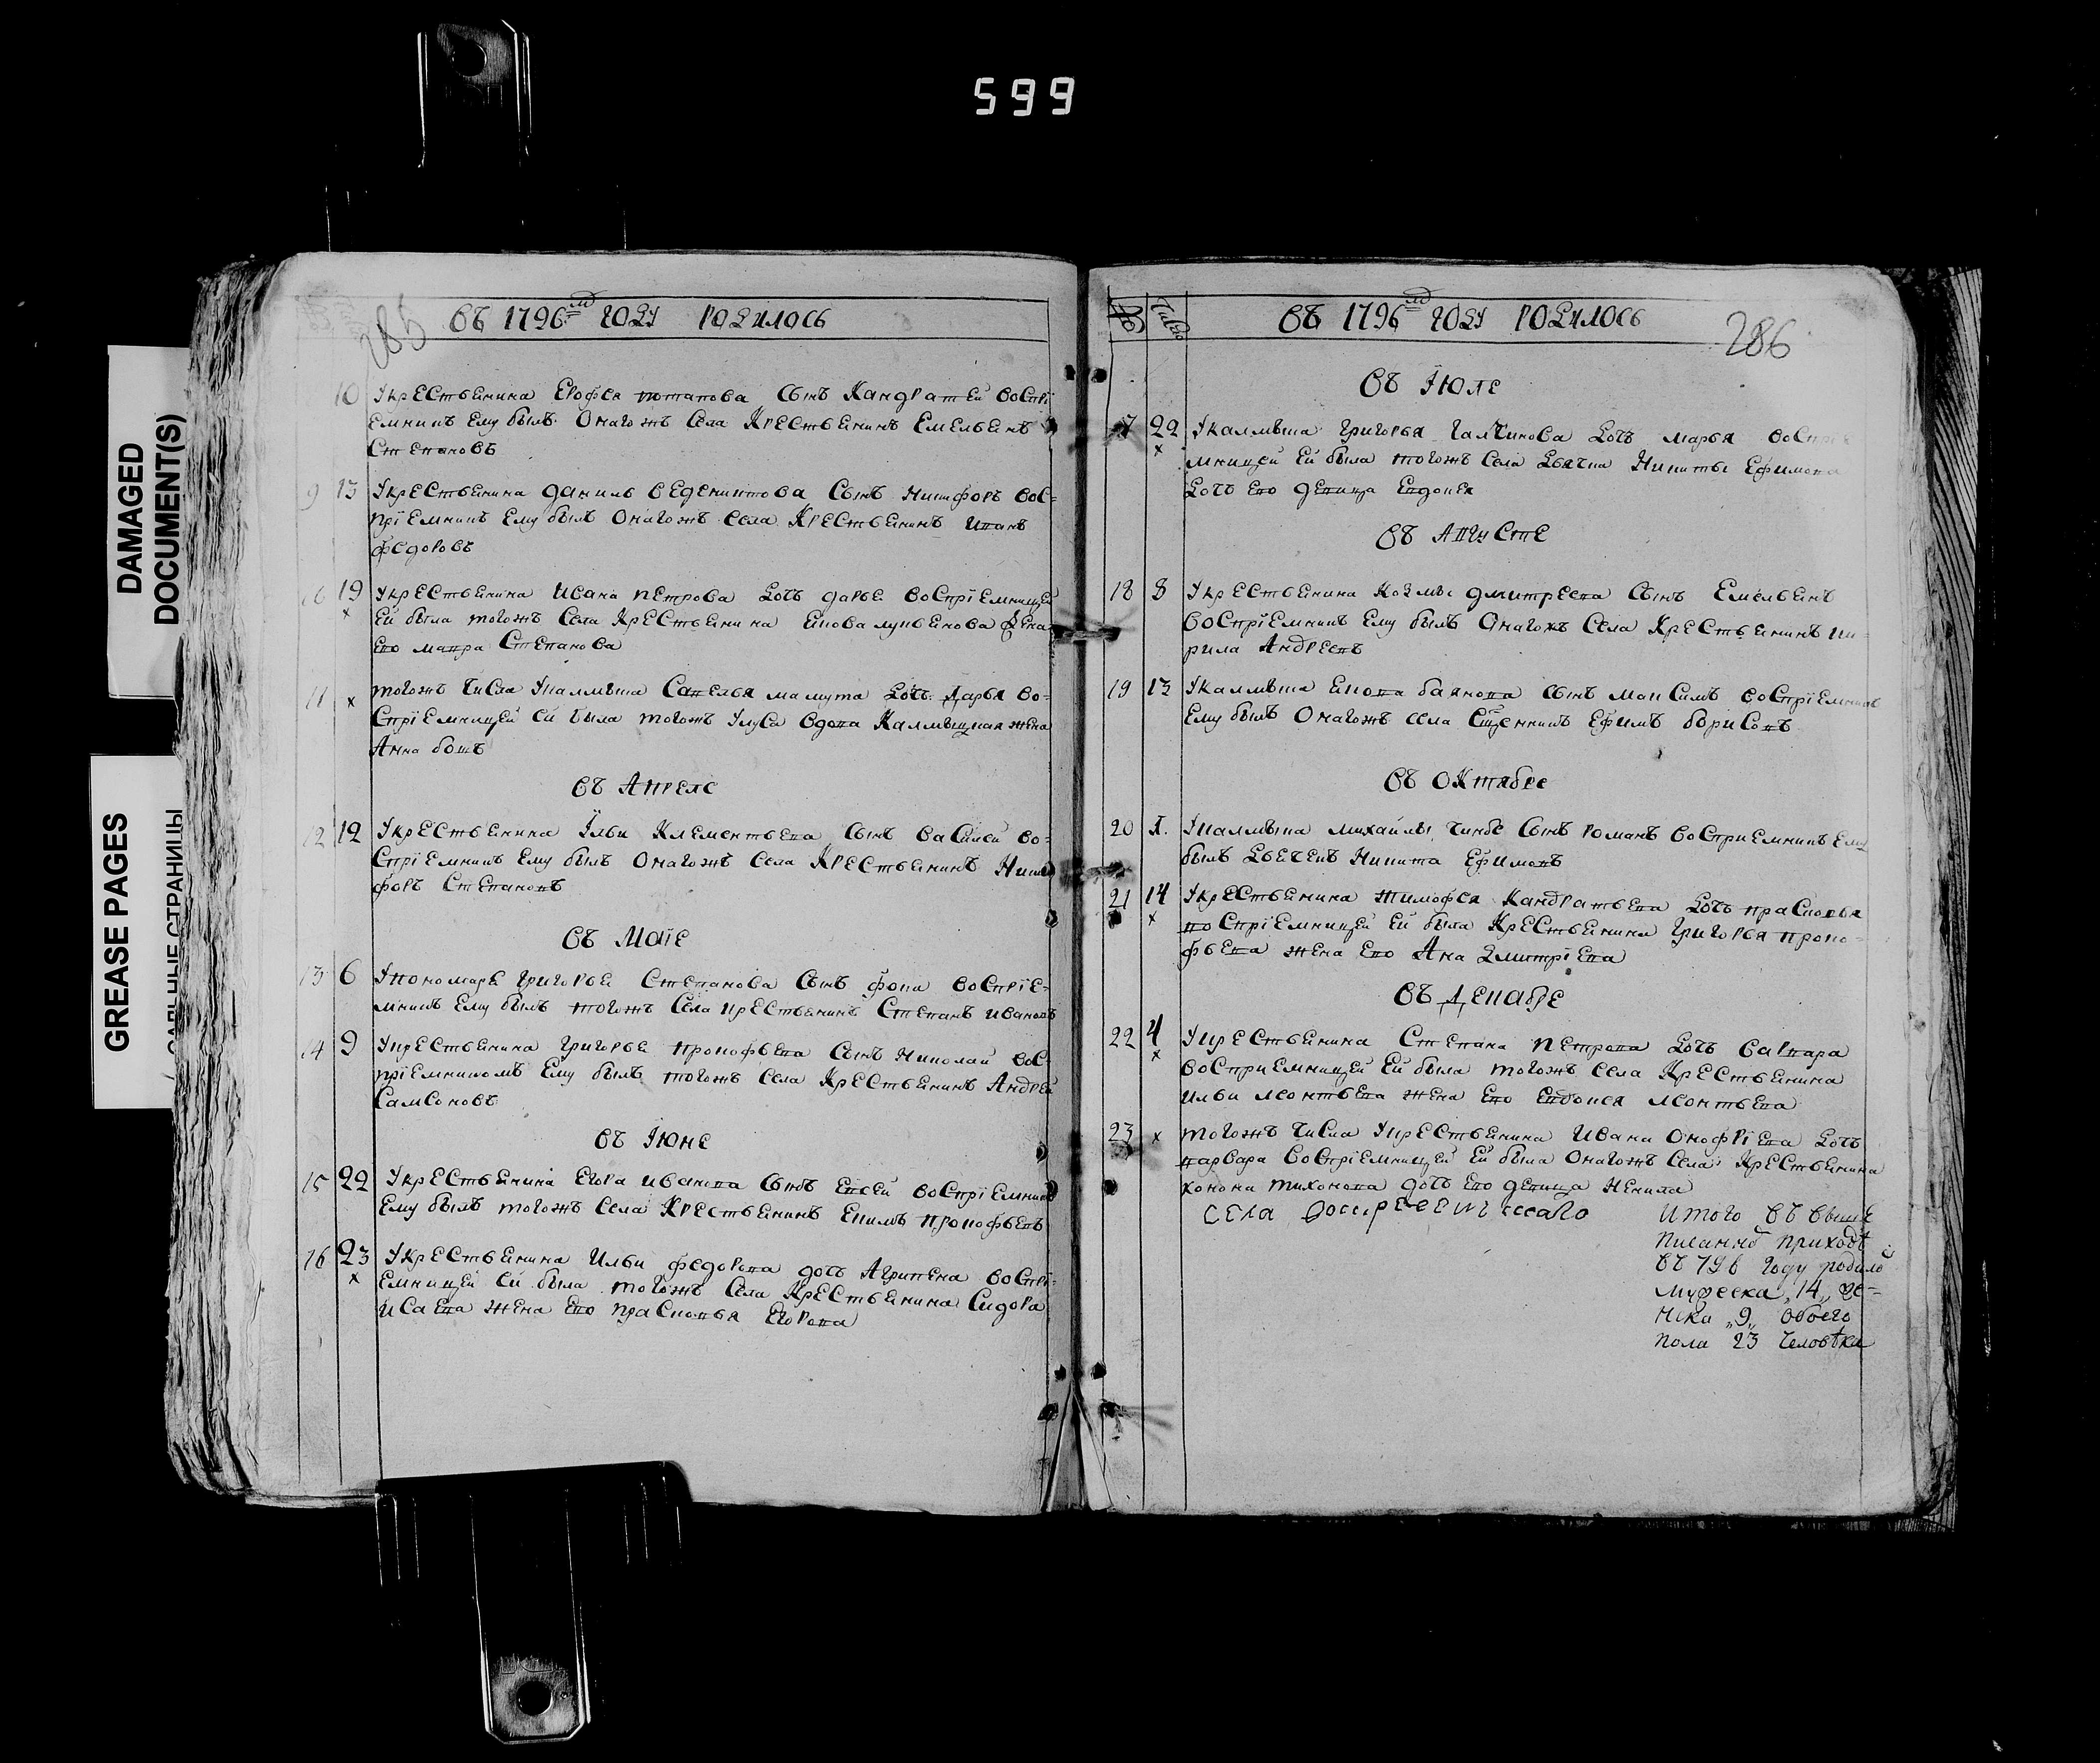 599
DAMAGED
DOCUMENT(S)
GREASE PAGES
САЛЬНЫЕ СТРАНИЦЫ
285
въ 1796 году родилось
10 Укрестьенина Ерофея потапова сынъ Кандратей воспрі
емникъ Ему былъ Онагожъ села Крестьенинъ Емельенъ
Степановъ
9 13 Укрестьенина данилы сынъ Никифоръ вос=
пріемникъ Ему былъ Онагожъ села Крестьенинъ иванъ
федоровъ
19 Укрестьенина Ивана петрова дочь дарье воспріемницей
х Ей была тогожъ села Крестьенина жена
Его мавра Степанова
11 х тогожъ числа Укалмыка дочь дарья во=
спріемницей ей была тогожъ Улуса вдова Калмыцкая жена
Анна
въ Апреле
12 12 Укрестьенина Ильи Клементьева сынъ василей во=
спріемникъ Ему былъ Онагожъ села Крестьенинъ Ники
форъ Степановъ
въ Маіе
13 6 Упономаре григорье Степанова сынъ фока воспріе=
мникъ Ему былъ тогожъ села крестьенинъ Степанъ ивановъ
14 9 Укрестьенина григорье прокофьева сынъ Николай вос=
пріемникомъ Ему былъ тогожъ села Крестьенинъ Андрей
Самсоновъ
въ Іюне
15 22 Укрестьенина Егора иванова сынъ Евсей воспріемникъ
Ему былъ тогожъ села Крестьенинъ Екимъ прокофьевъ
16 23 Укрестьенина Ильи федорова дочь Агрипена воспрі=
х емницей ей была тогожъ села Крестьенина Сидора
Исаева жена Его прасковья Егорова
№ Число
въ 1796 году родилось
286
въ Іюле
17 22 Укалмыка григорья дочь марья воспріе
х мницей ей была тогожъ села дьячка Никиты Ефимова
дочь Его девица Евдокея
въ Августе
18 8 Укрестьенина Козмы дмитреева сынъ Емельенъ
воспріемникъ Ему былъ Онагожъ села Крестьенинъ ки-
рила Андреевъ
19 13 Укалмыка сынъ максимъ воспріемникъ
Ему былъ Онагожъ села Сщенникъ Ефимъ борисовъ
въ Октябре
20 Укалмыка михайлы сынъ романъ восприемникъ Ему
былъ дьечекъ Никита Ефимовъ
21 14 Укрестьенина тимофея Кандратьева дочь прасковья
х воспріемницей Ей была Крестьенина григорья проко=
фьева жена Его Ана дмитріева
въ декабре
22 4 Укрестьенина Степана петрова дочь варвара
х восприемницей Ей была тогожъ села Крестьенина
ильи леонтьева жена Его Евдокея леонтьева
23 х тогожъ числа Укрестьенина Ивана Онофріева дочь
варвара воспріемницей Ей была Онагожъ села Крестьенина
конона тихонова дочь Его девица Ненила
села
Итого въ выше
писанно приходѣ
въ 796 году родило
мужеска „14„ же=
нска „9„ обоего
пола 23 человѣка